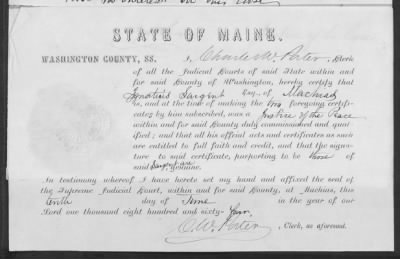 STATE OF MAINE.
WASHINGTON COUNTY, SS. I, Charles W. Porter, Clerk
of all the Judicial Courts of said State within and
for said County of Washington, hereby certify that
Ignatius Sargent Esq. of Machias
is, and at the time of making the two foregoing certifi-
cates by him subscribed, was a Justice of the Peace
within and for said County duly commissioned and qual-
ified; and that all his official acts and certificates as such
are entitled to full faith and credit, and that the signa-
ture to said certificate, purporting to be those of
said Sargent are genuine.
In testimony whereof I have hereto set my hand and affixed the seal of
the Supreme Judicial Court, within and for said County, at Machias, this
tenth day of June in the year of our
Lord one thousand eight hundred and sixty-four.
C. W. Porter, Clerk, as aforesaid.